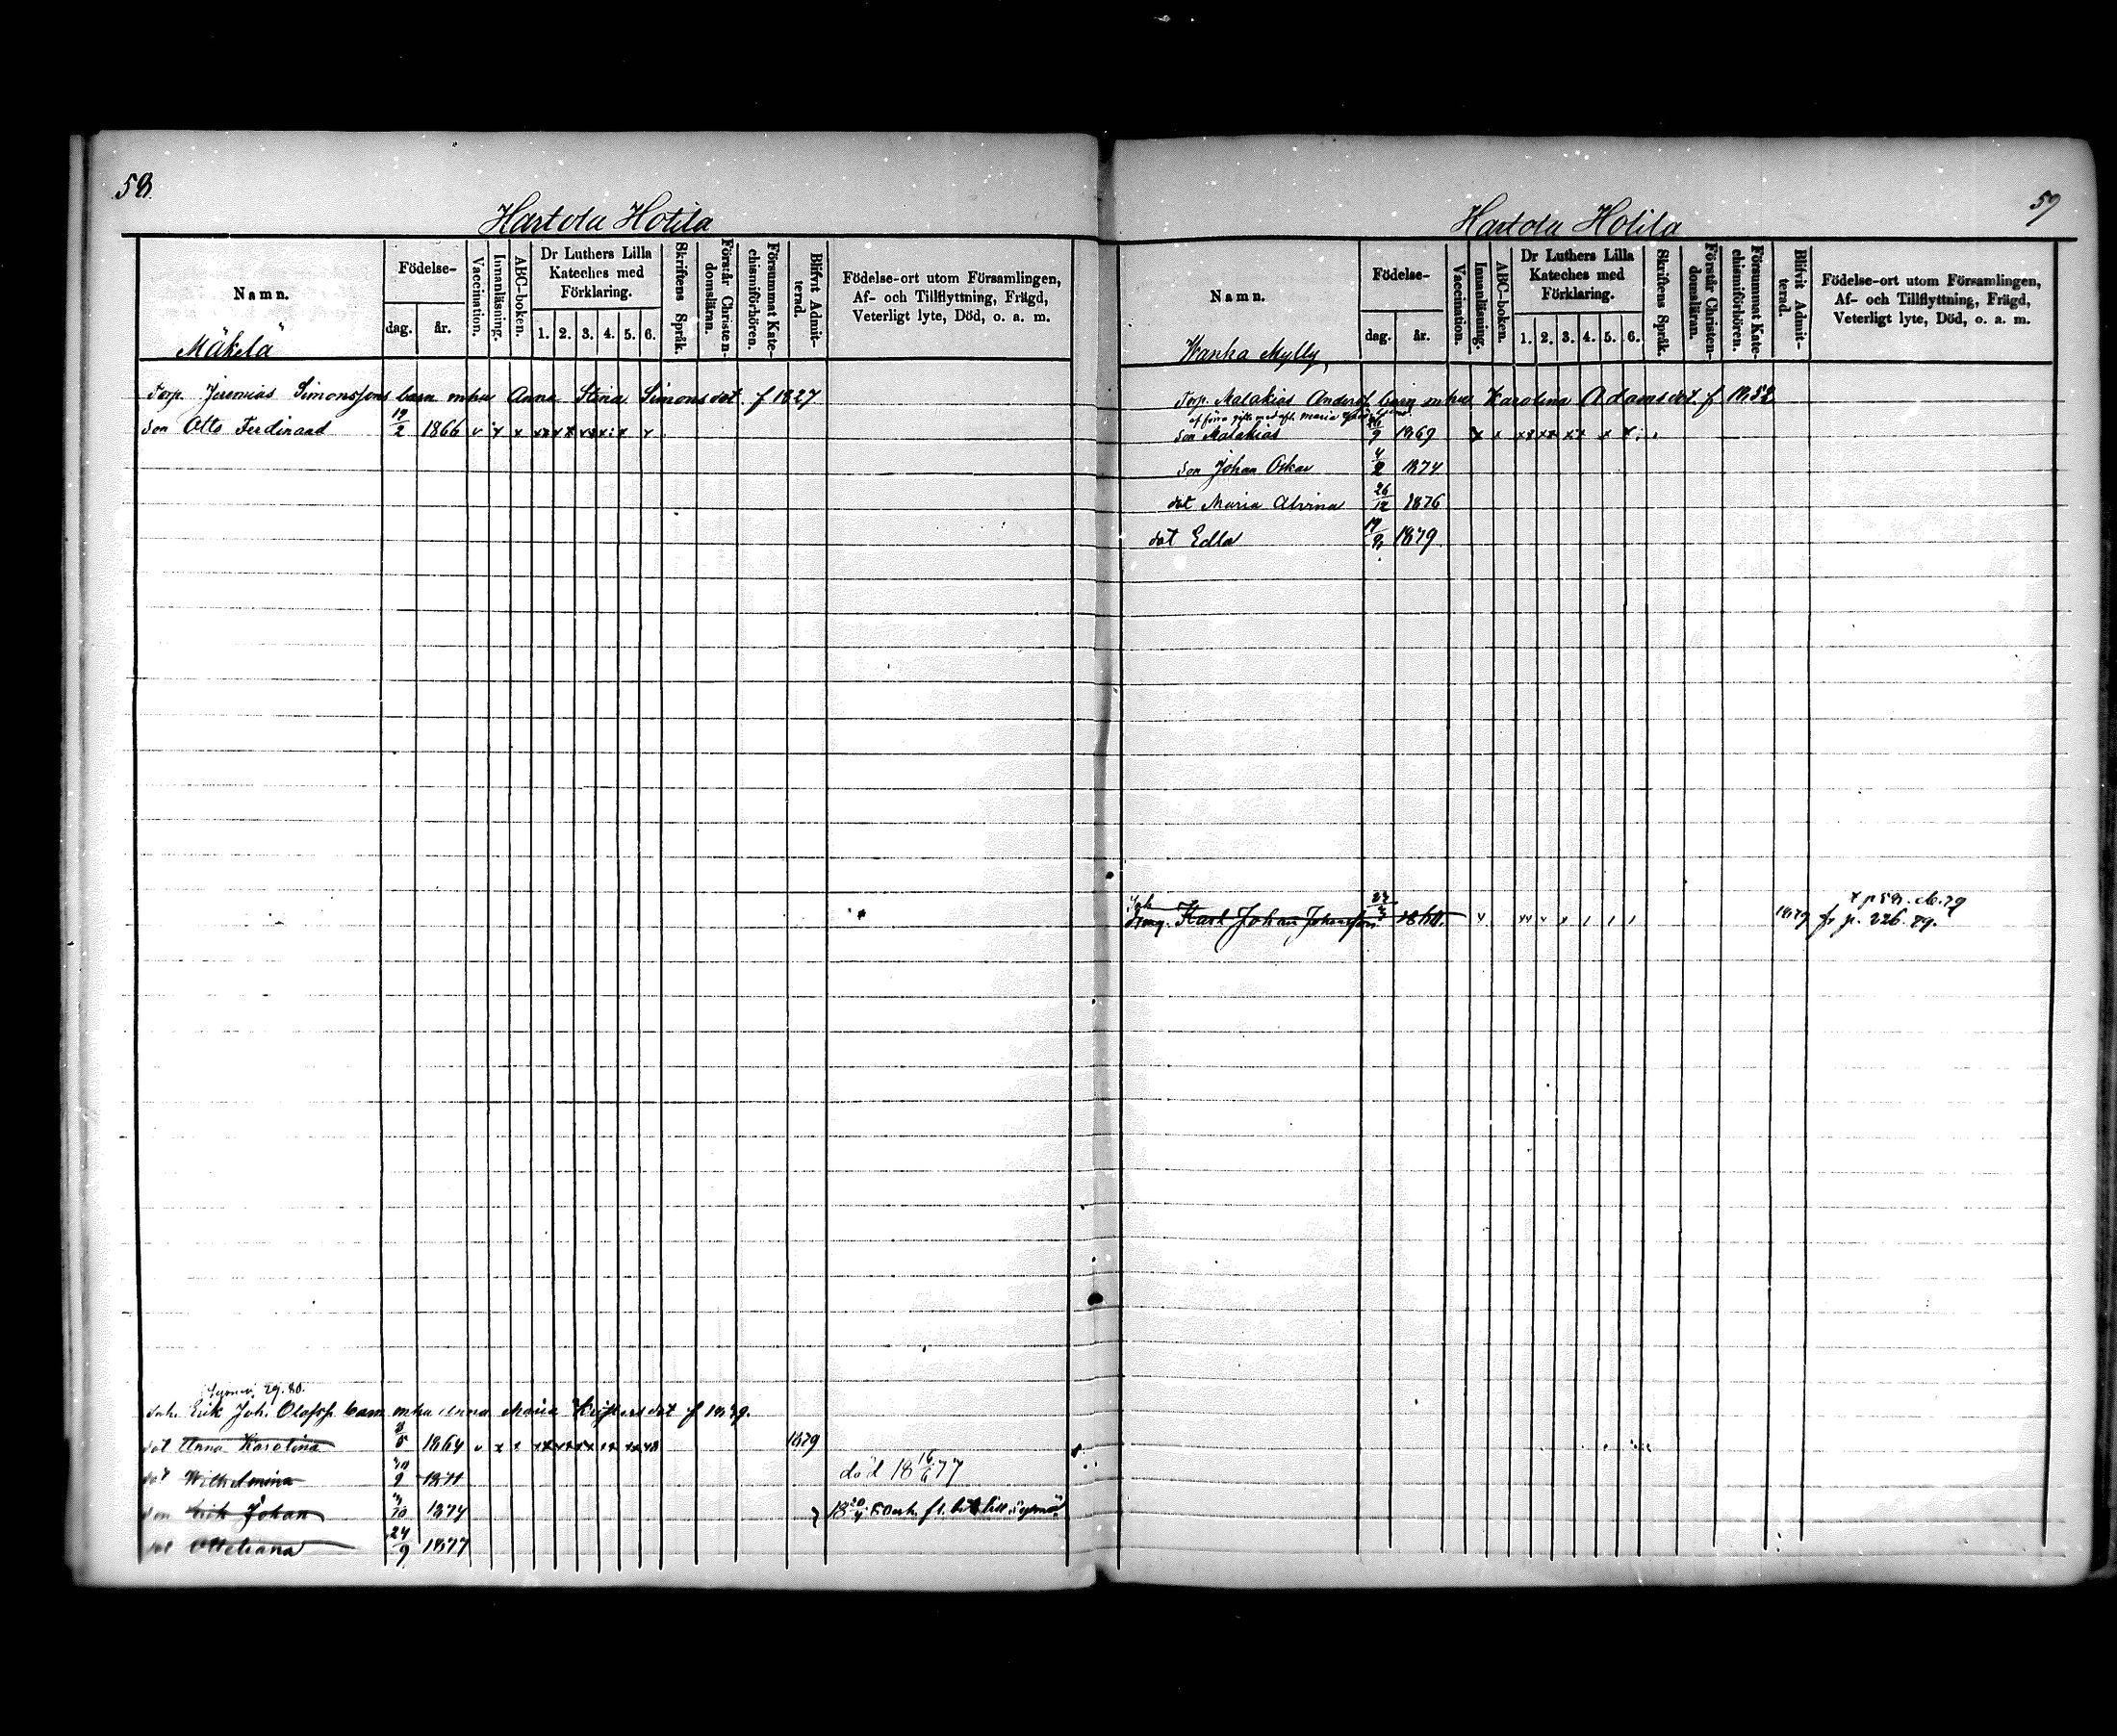 58.
Hartola Hotila
Namn.
Födelse-
dag.
år.
Vaccination.
Innanläsning.
ABC-boken.
Dr Luthers Lilla
Kateches med
Förklaring.
1. 2. 3. 4. 5. 6.
Skriftens Språk.
Förstår Christen-
domsläran.
Försummat Kate-
chismiförhören.
Blifvit Admit-
terad.
Födelse-ort utom Församlingen,
Af- och Tillflyttning, Frägd,
Veterligt lyte, Död, o. a. m.
Mäkelä
Torp. Jeremias Simonssons barn mhu Anna Stina Simonsdot. f 1827
Son Otto Ferdinand 19/2 1866 v x x
29.80.
Inh. Erik Joh. Olofss. barn mhu Anna Maria f 1839.
dot Anna Karolina 1864 v x x 1879
dot Wilhelmina död 18 16/6 77
son Erik Johan 1874
dot Ottiliana 24/9 1877
59
Hartola Hotila
Namn.
Födelse-
dag.
år.
Vaccination.
Innanläsning.
ABC-boken.
Dr Luthers Lilla
Kateches med
Förklaring.
1. 2. 3. 4. 5. 6.
Skriftens Språk.
Förstår Christen-
domsläran.
Försummat Kate-
chismiförhören.
Blifvit Admit-
terad.
Födelse-ort utom Församlingen,
Af- och Tillflyttning, Frägd,
Veterligt lyte, Död, o. a. m.
Wanha Mylly,
Torp. Malakias Anderss. barn mhu Karolina Adamsdot. f 1852
son Malakias 1869
son Johan Oskar 4/2 1874
dot Maria Alvina 26/12 1876
dot Edla 1879
Dräng. Karl Johan Johansson 1879 fr p. 226. 79.